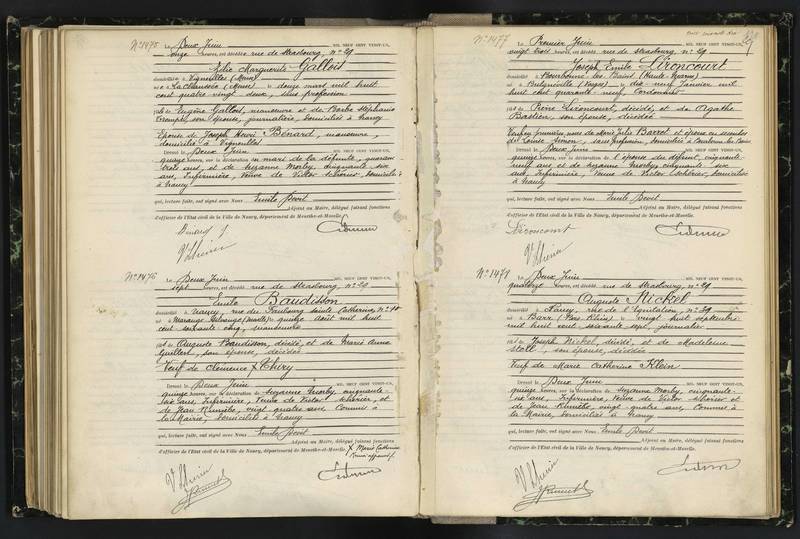 N° 1475
Le Deux Juin MIL NEUF CENT VINGT-UN,
onze heures, est décédée rue de Strasbourg, n° 29
Marguerite Gallois
domiciliée à Vigneulles (Meuse)
née à Lachaussée (Meuse) le douze mars mil huit
cent quatre vingt deux, sans profession
fille de Eugène Gallois, manoeuvre et de Barbe Stéphanie
son épouse, journalière, domiciliés à Nancy
Epouse de Joseph Henri Bénard, manoeuvre,
domicilié à Vigneulles
Dressé le Deux Juin MIL NEUF CENT VINGT-UN,
quinze heures, sur la déclaration du mari de la défunte, quarante
trois ans, et de Suzanne Morby, cinquante six
ans, Infirmière, Veuve de Victor domiciliés
à Nancy
qui, lecture faite, ont signé avec Nous Emile Devit
Adjoint au Maire, délégué faisant fonctions
d'officier de l'Etat civil de la Ville de Nancy, département de Meurthe-et-Moselle.
N° 1476
Le Deux Juin MIL NEUF CENT VINGT-UN,
sept heures, est décédé rue de Strasbourg, n° 29
Emile Baudisson
domicilié à Nancy, rue du Faubourg Sainte Catherine, n°
né à le quinze Août mil huit
cent soixante cinq, manoeuvre
fils de Auguste Baudisson, décédé, et de Marie Anne
son épouse, décédée
Veuf de Clemence X Thiry
Dressé le Deux Juin MIL NEUF CENT VINGT-UN,
quinze heures, sur la déclaration de Suzanne Morby, cinquante
six ans, Infirmière, Veuve de Victor et
de Jean vingt quatre ans, Commis à
la Mairie, domiciliés à Nancy
qui, lecture faite, ont signé avec Nous Emile Devit
Adjoint au Maire, délégué faisant fonctions
d'officier de l'Etat civil de la Ville de Nancy, département de Meurthe-et-Moselle.
X Marie Catherine
N° 1477
Le Premier Juin MIL NEUF CENT VINGT-UN,
vingt trois heures, est décédé rue de Strasbourg, n° 29
Joseph Emile Lironcourt
domicilié à Bourbonne-les-Bains (Haute-Marne)
né à Bulgnéville (Vosges) le dix-neuf Janvier mil
huit cent quarante-neuf, Cordonnier
fils de Pierre Lironcourt, décédé, et de Agathe
Bastien, son épouse, décédée
Veuf en premières noces de Marie Julie Barrot et époux en secondes
de Louise Simon, sans profession, domiciliée à Bourbonne les Bains
Dressé le Deux Juin MIL NEUF CENT VINGT-UN,
quinze heures, sur la déclaration de l'épouse du défunt, cinquante-
neuf ans et de Suzanne Morby, cinquante six
ans, Infirmière, Veuve de Victor domiciliées
à Nancy
qui, lecture faite, ont signé avec Nous Emile Devit
Adjoint au Maire, délégué faisant fonctions
d'officier de l'Etat civil de la Ville de Nancy, département de Meurthe-et-Moselle.
Lironcourt
N° 1478
Le Deux Juin MIL NEUF CENT VINGT-UN,
quatorze heures, est décédé rue de Strasbourg, n° 29
Auguste Nickel
domicilié à Nancy, rue de l'Equitation, n° 39
né à Barr (Bas Rhin) le vingt huit septembre
mil huit cent soixante sept, journalier
fils de Joseph Nickel, décédé, et de Madeleine
Stoll, son épouse, décédée
Veuf de Marie Catherine Klein
Dressé le Deux Juin MIL NEUF CENT VINGT-UN,
quinze heures, sur la déclaration de Suzanne Morby, cinquante-
six ans, Infirmière, Veuve de Victor et
de Jean vingt quatre ans, Commis à
la Mairie, domiciliés à Nancy
qui, lecture faite, ont signé avec Nous Emile Devit
Adjoint au Maire, délégué faisant fonctions
d'officier de l'Etat civil de la Ville de Nancy, département de Meurthe-et-Moselle.